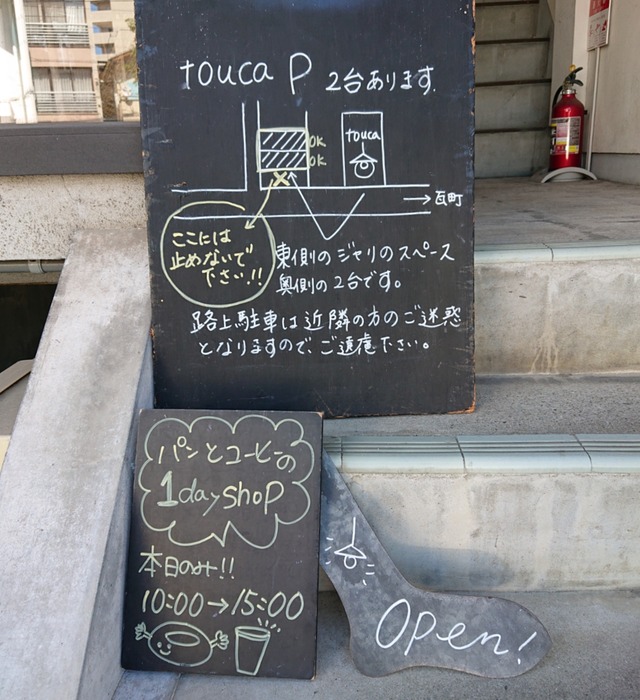 touca P 2台あります.
touca
OK
OK
→瓦町
ここには
止めないで
下さい!!
東側のジャリのスペース
奥側の2台です。
路上駐車は近隣の方のご迷惑
となりますので、ご遠慮下さい。
パンとコーヒーの
1day shop
本日のみ!!
10:00→15:00
Open!